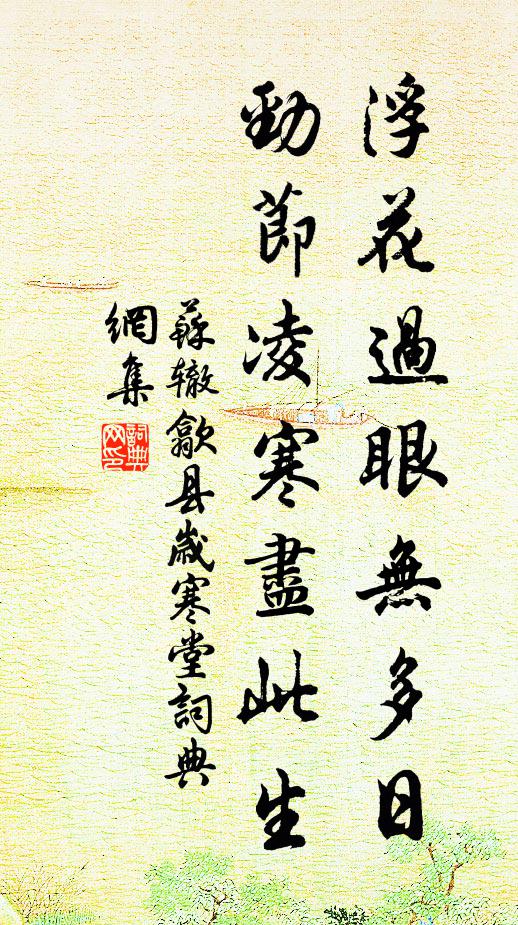 浮花過眼無多日
勁節凌寒盡此生
蘇辙歙县歲寒堂詞典
網集
詞典
网印